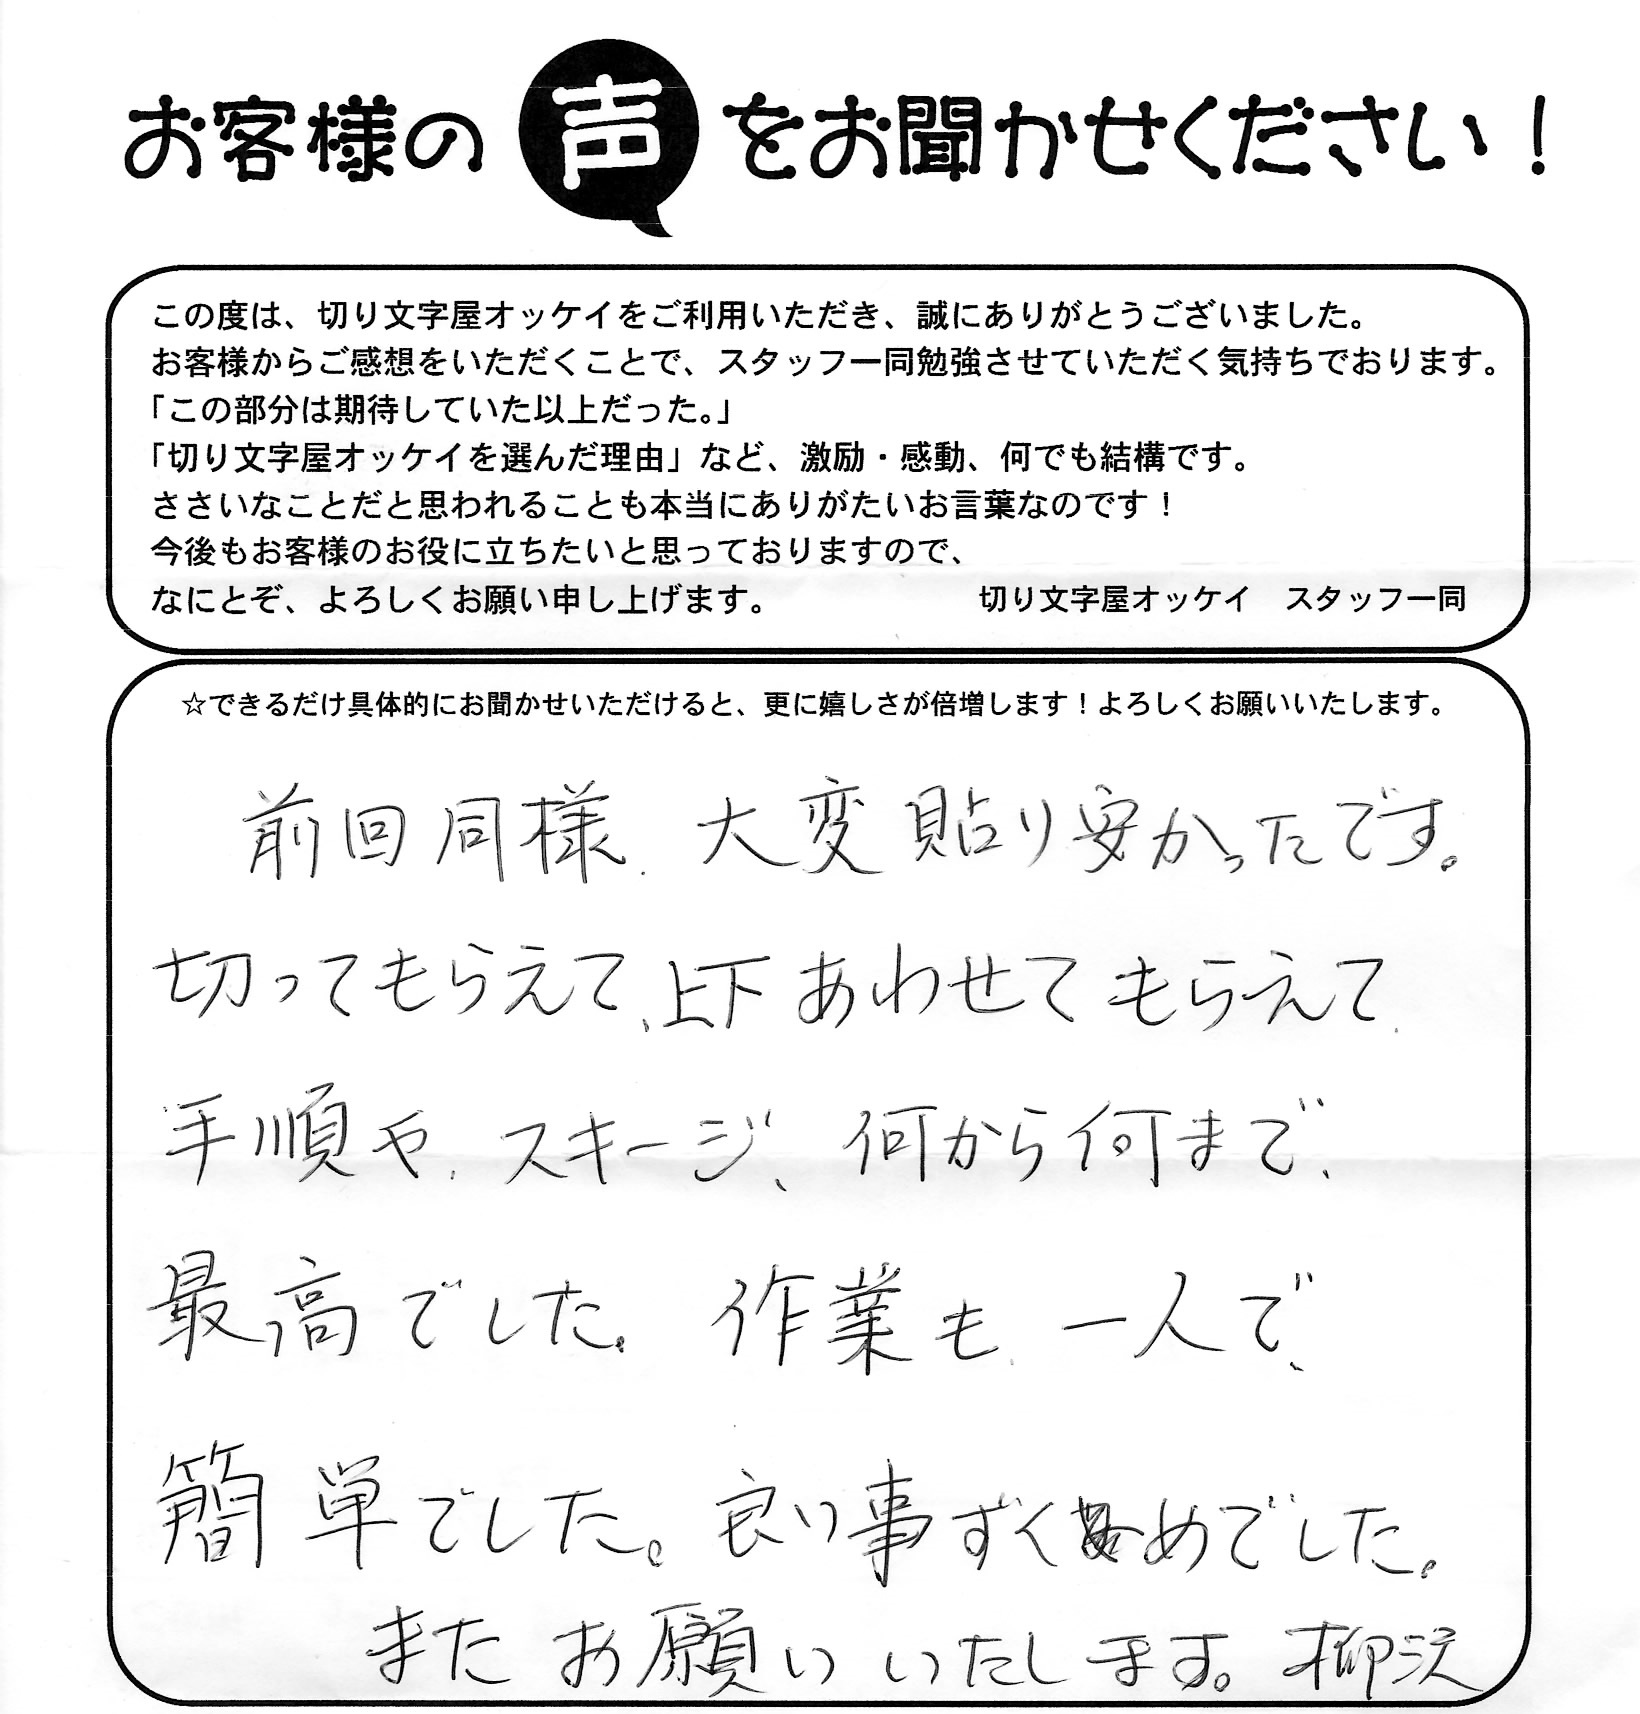 お客様の声をお聞かせください！
この度は、切り文字屋オッケイをご利用いただき、誠にありがとうございました。
お客様からご感想をいただくことで、スタッフ一同勉強させていただく気持ちでおります。
「この部分は期待していた以上だった。」
「切り文字屋オッケイを選んだ理由」など、激励・感動、何でも結構です。
ささいなことだと思われることも本当にありがたいお言葉なのです！
今後もお客様のお役に立ちたいと思っておりますので、
なにとぞ、よろしくお願い申し上げます。　切り文字屋オッケイ　スタッフ一同
☆できるだけ具体的にお聞かせいただけると、更に嬉しさが倍増します！よろしくお願いいたします。
前回同様、大変貼り安かったです。
切ってもらえて、上下あわせてもらえて、
手順や、スキージ、何から何まで、
最高でした。作業も、一人で、
簡単でした。良い事ずくめでした。
またお願いいたします。柳沢